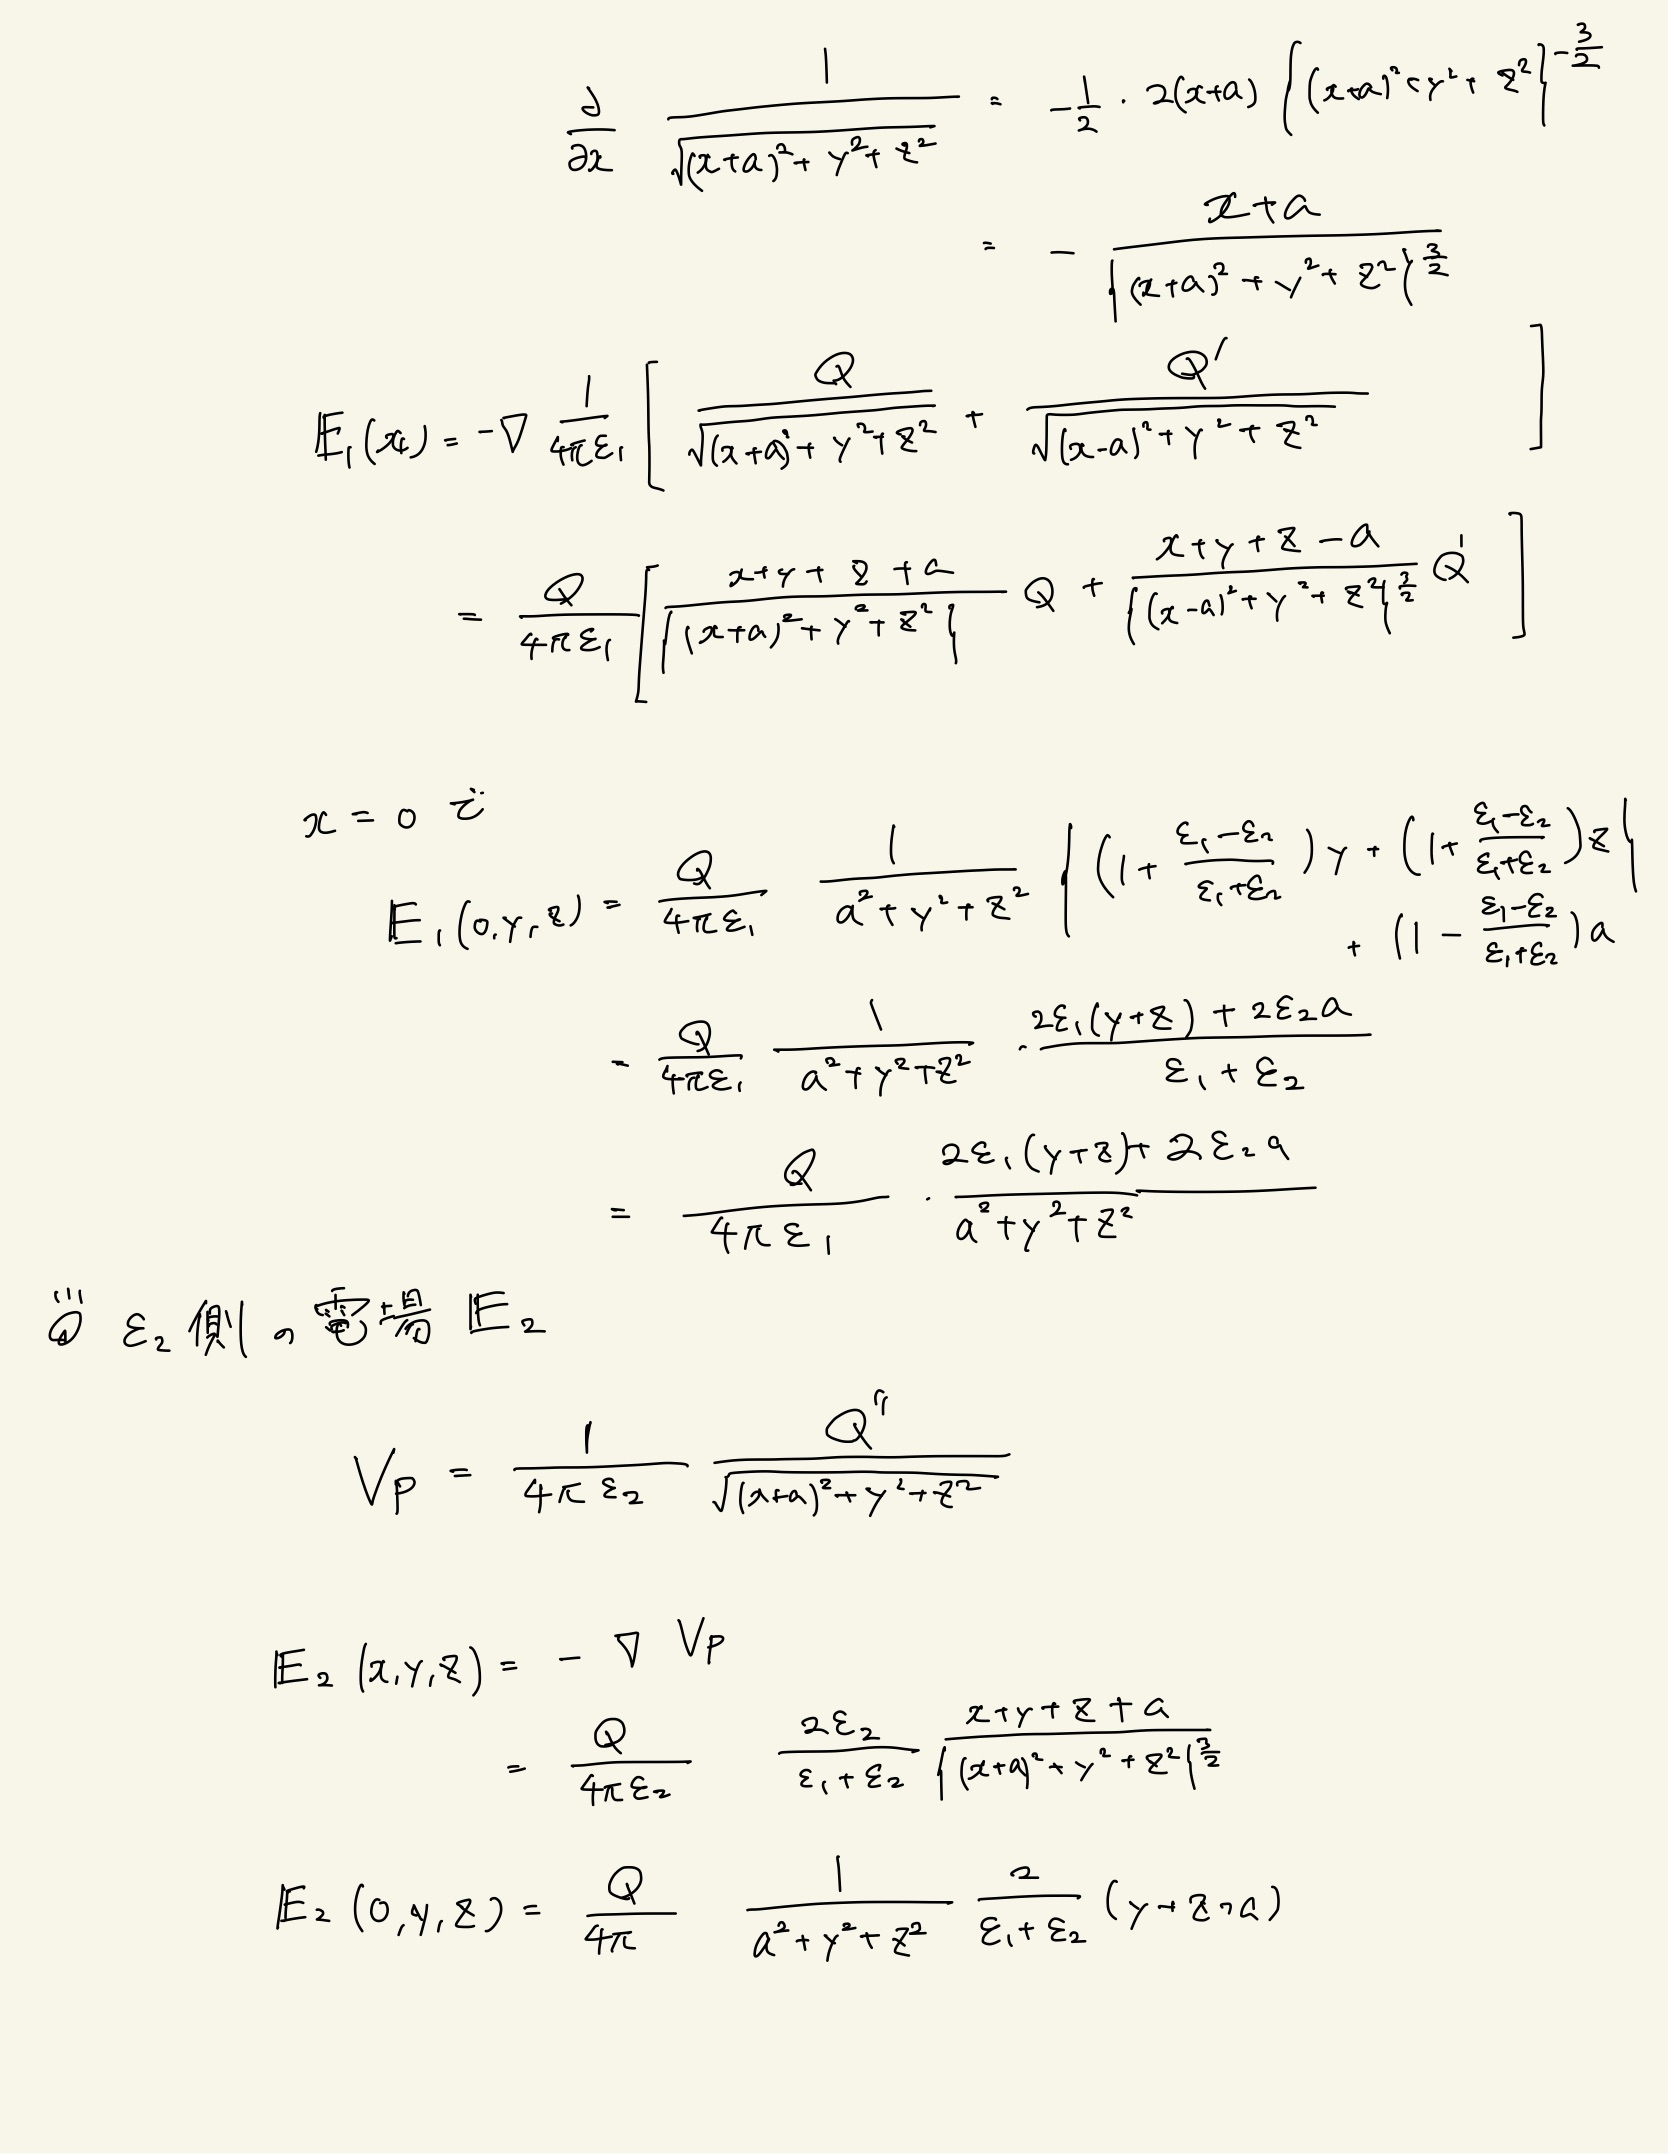 ∂/∂x 1/√((x+a)²+y²+z²) = -1/2 · 2(x+a) {(x+a)²+y²+z²}^(-3/2)
= - (x+a)/{(x+a)²+y²+z²}^(3/2)
E₁(x) = -∇ 1/(4πε₁) [ Q/√((x+a)²+y²+z²) + Q'/√((x-a)²+y²+z²) ]
= Q/(4πε₁) [ (x+y+z+a)/{(x+a)²+y²+z²} Q + (x+y+z-a)/{(x-a)²+y²+z²}^(3/2) Q' ]
x = 0 で
E₁(0,y,z) = Q/(4πε₁) 1/(a²+y²+z²) { (1+(ε₁-ε₂)/(ε₁+ε₂))y + (1+(ε₁-ε₂)/(ε₁+ε₂))z }
+ (1-(ε₁-ε₂)/(ε₁+ε₂))a
= Q/(4πε₁) 1/(a²+y²+z²) · (2ε₁(y+z)+2ε₂a)/(ε₁+ε₂)
= Q/(4πε₁) · (2ε₁(y+z)+2ε₂a)/(a²+y²+z²)
ε₂側の電場 E₂
Vp = 1/(4πε₂) Q''/√((x+a)²+y²+z²)
E₂(x,y,z) = -∇Vp
= Q/(4πε₂) 2ε₂/(ε₁+ε₂) (x+y+z+a)/{(x+a)²+y²+z²}^(3/2)
E₂(0,y,z) = Q/(4π) 1/(a²+y²+z²) 2/(ε₁+ε₂) (y+z+a)